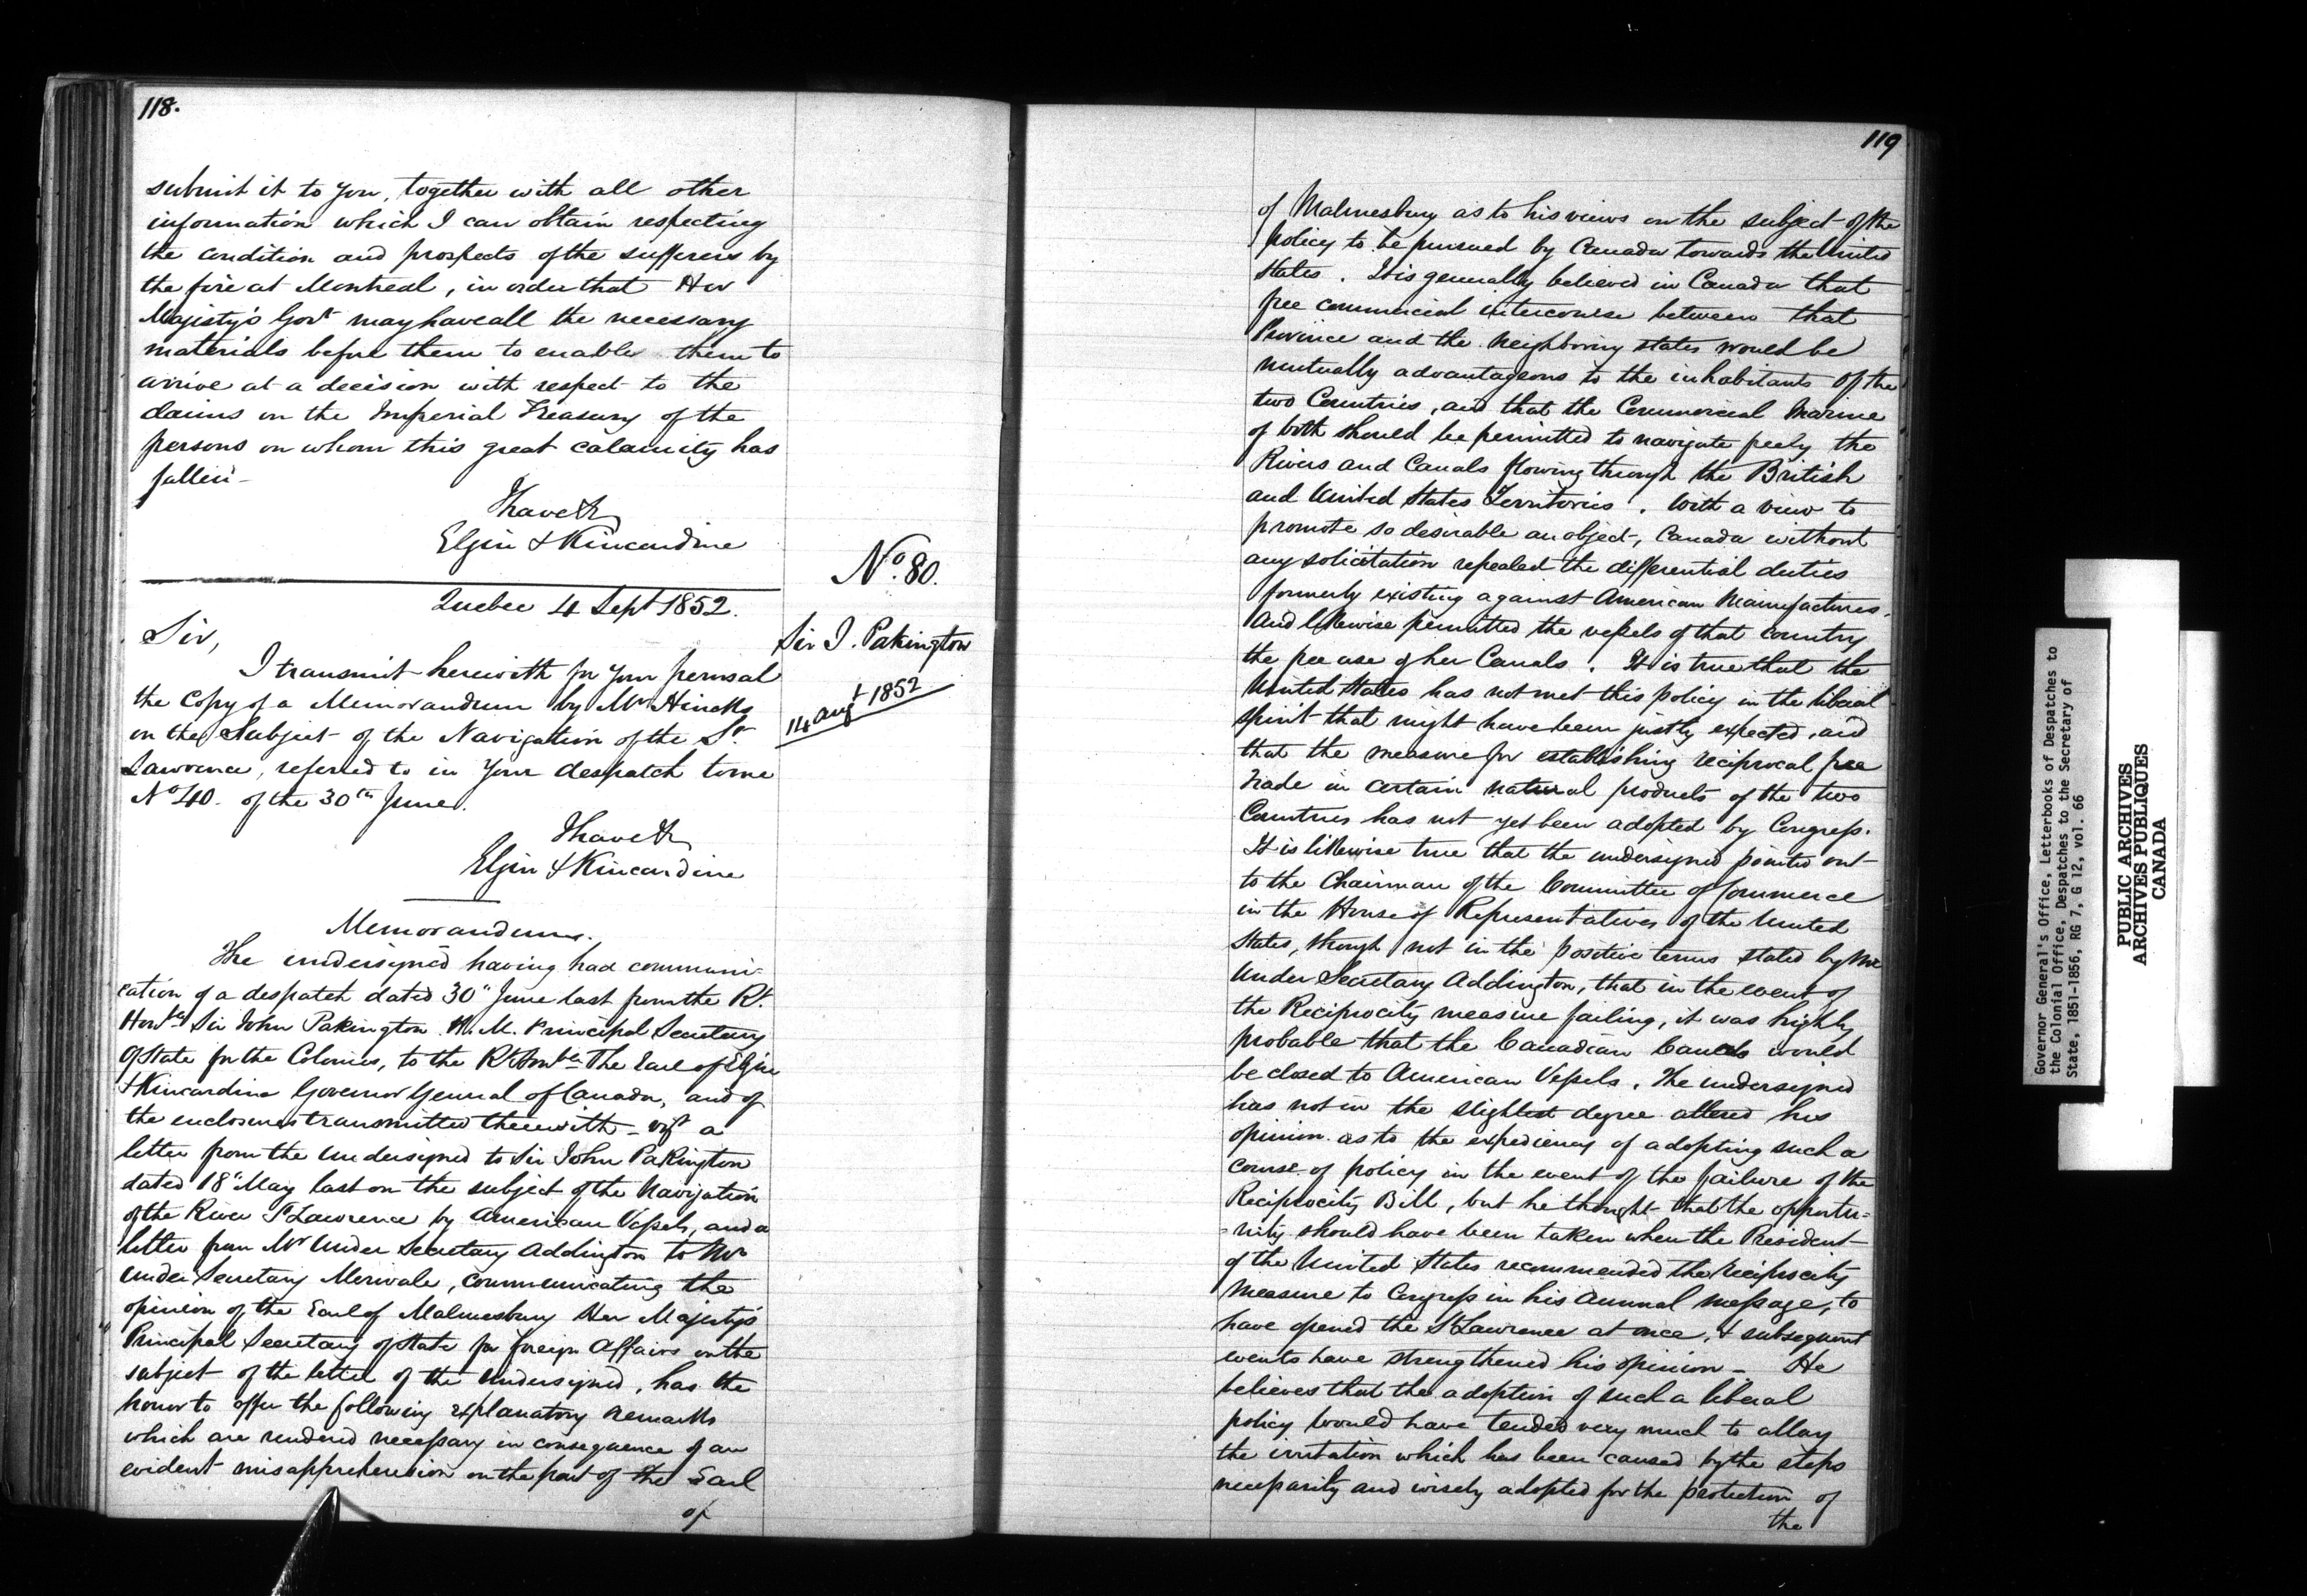 118.
submit it to you, together with all other
information which I can obtain respecting
the condition and prospects of the sufferers by
the fire at Montreal, in order that Her
Majesty's Govt may have all the necessary
materials before them to enable them to
arrive at a decision with respect to the
claims on the Imperial Treasury of the
persons on whom this great calamity has
fallen -
I have &c
Elgin & Kincardine
No. 80.
Quebec 4 Sept 1852.
Sir J. Pakington
Sir,
I transmit herewith for your perusal
the copy of a Memorandum by Mr Hincks
14 Augt 1852
on the subject of the Navigation of the St
Lawrence, referred to in your despatch to me
No 40. of the 30th June.
I have &c
Elgin & Kincardine
Memorandum.
The undersigned having had communi-
cation of a despatch dated 30" June last from the Rt.
Honble Sir John Pakington H. M. Principal Secretary
of State for the Colonies, to the Rt Honble The Earl of Elgin
& Kincardine Governor General of Canada, and of
the enclosures transmitted therewith - vizt a
letter from the undersigned to Sir John Pakington
dated 18" May last on the subject of the Navigation
of the River St Lawrence by American Vessels, and a
letter from Mr Under Secretary Addington to Mr
Under Secretary Merivale, communicating the
opinion of the Earl of Malmesbury Her Majesty's
Principal Secretary of State for foreign Affairs on the
subject of the letter of the undersigned, has the
honor to offer the following explanatory remarks
which are rendered necessary in consequence of an
evident misapprehension on the part of the Earl
of
119
of Malmesbury as to his views on the subject of the
policy to be pursued by Canada towards the United
States. It is generally believed in Canada that
free commercial intercourse between that
Province and the neighboring states would be
mutually advantageous to the inhabitants of the
two Countries, and that the Commercial Marine
of both should be permitted to navigate freely the
Rivers and Canals flowing through the British
and United States Territories. With a view to
promote so desirable an object, Canada without
any solicitation repealed the differential duties
formerly existing against American Manufactures,
and likewise permitted the vessels of that country
the free use of her Canals. It is true that the
United States has not met this policy in the liberal
spirit that might have been justly expected, and
that the measure for establishing reciprocal free
trade in certain natural products of the two
Countries has not yet been adopted by Congress.
It is likewise true that the undersigned pointed out
to the Chairman of the Committee of Commerce
in the House of Representatives of the United
States, though not in the positive terms stated by Mr
Under Secretary Addington, that in the event of
the Reciprocity measure failing, it was highly
probable that the Canadian Canals would
be closed to American Vessels. The undersigned
has not in the slightest degree altered his
opinion as to the expediency of adopting such a
course of policy in the event of the failure of the
Reciprocity Bill, but he thought that the opportu=
=nity should have been taken when the President
of the United States recommended the reciprocity
measure to Congress in his Annual message, to
have opened the St Lawrence at once, & subsequent
events have strengthened his opinion - He
believes that the adoption of such a liberal
policy would have tended very much to allay
the irritation which has been caused by the steps
necessarily and wisely adopted for the protection of
the
Governor General's Office, Letterbooks of Despatches to
the Colonial Office, Despatches to the Secretary of
State, 1851-1856, RG 7, G 12, vol. 66
PUBLIC ARCHIVES
ARCHIVES PUBLIQUES
CANADA